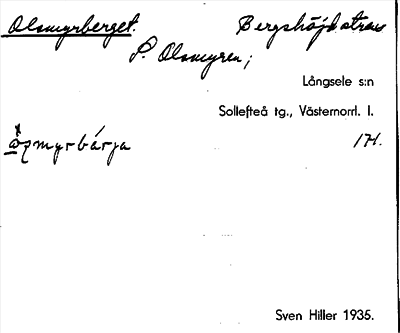 Olsmyrberget. Bergshöjdsträcka
S. Olsmyren;
Långsele s:n
Sollefteå tg., Västernorrl. l.
174.
Sven Hiller 1935.